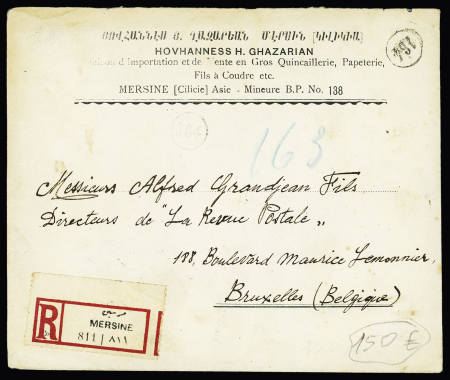 ՅՈՎՀԱՆՆԷՍ Յ. ՂԱԶԱՐԵԱՆ ՄԷՐՍԻՆ [ԿԻԼԻԿԻԱ]
HOVHANNESS H. GHAZARIAN
d'Importation et de Vente en Gros Quincaillerie, Papeterie,
Fils à Coudre etc.
MERSINE [Cilicie] Asie - Mineure B.P. No. 138
164
163
Messieurs Alfred Grandjean Fils
Directeurs de "La Revue Postale"
188, Boulevard Maurice Lemonnier,
Bruxelles (Belgique)
R
مرسين
MERSINE
811 | ٨١١
150 €